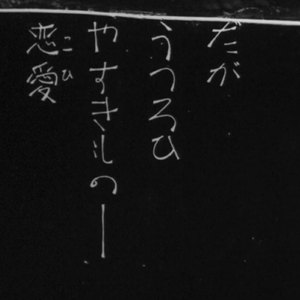 だが
うつろひ
やすきもの―
恋愛
こひ